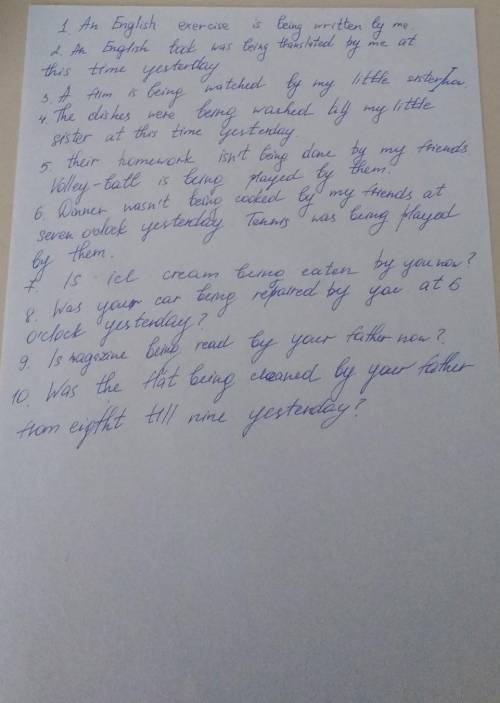 1 An English exercise is being written by me.
2. An English book was being translated by me at
this time yesterday
3. A film is being watched by my little sister now.
4. The dishes were being washed by my little
sister at this time yesterday.
5. their homework isn't being done by my friends.
Volley-ball is being played by them.
6. Dinner wasn't being cooked by my friends at
seven o'clock yesterday Tennis was being played
by them.
7. Is ice cream being eaten by you now?
8. Was your car being repaired by you at 6
o'clock yesterday?
9. Is magazine being read by your father now?
10. Was the flat being cleaned by your father
from eightht till nine yesterday?